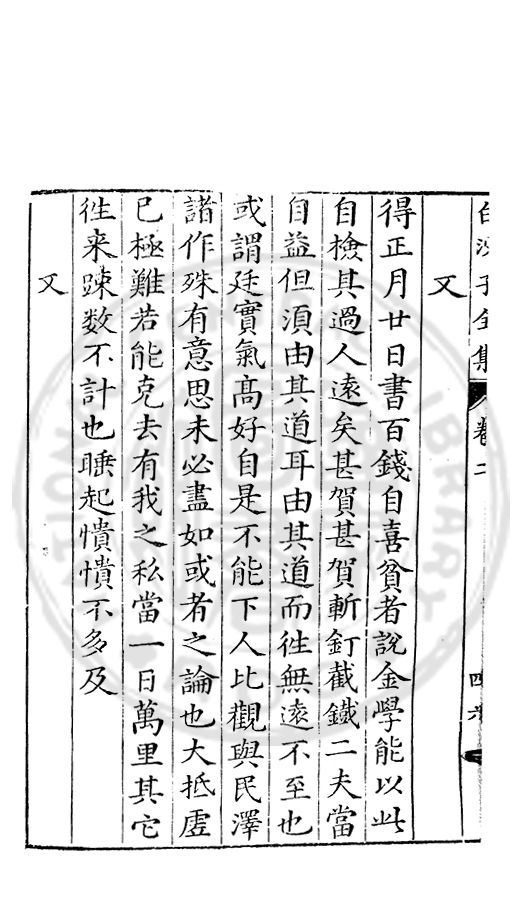 白沙子全集 卷二 四六
又
得正月廿日書百錢自喜貧者說金學能以此
自檢其過人遠矣甚賀甚賀斬釘截鐵二夫當
自益但須由其道耳由其道而徃無遠不至也
或謂廷實氣高好自是不能下人比觀與民澤
諸作殊有意思未必盡如或者之論也大抵虛
已極難若能克去有我之私當一日萬里其它
徃来踈数不計也睡起憒憒不多及
又